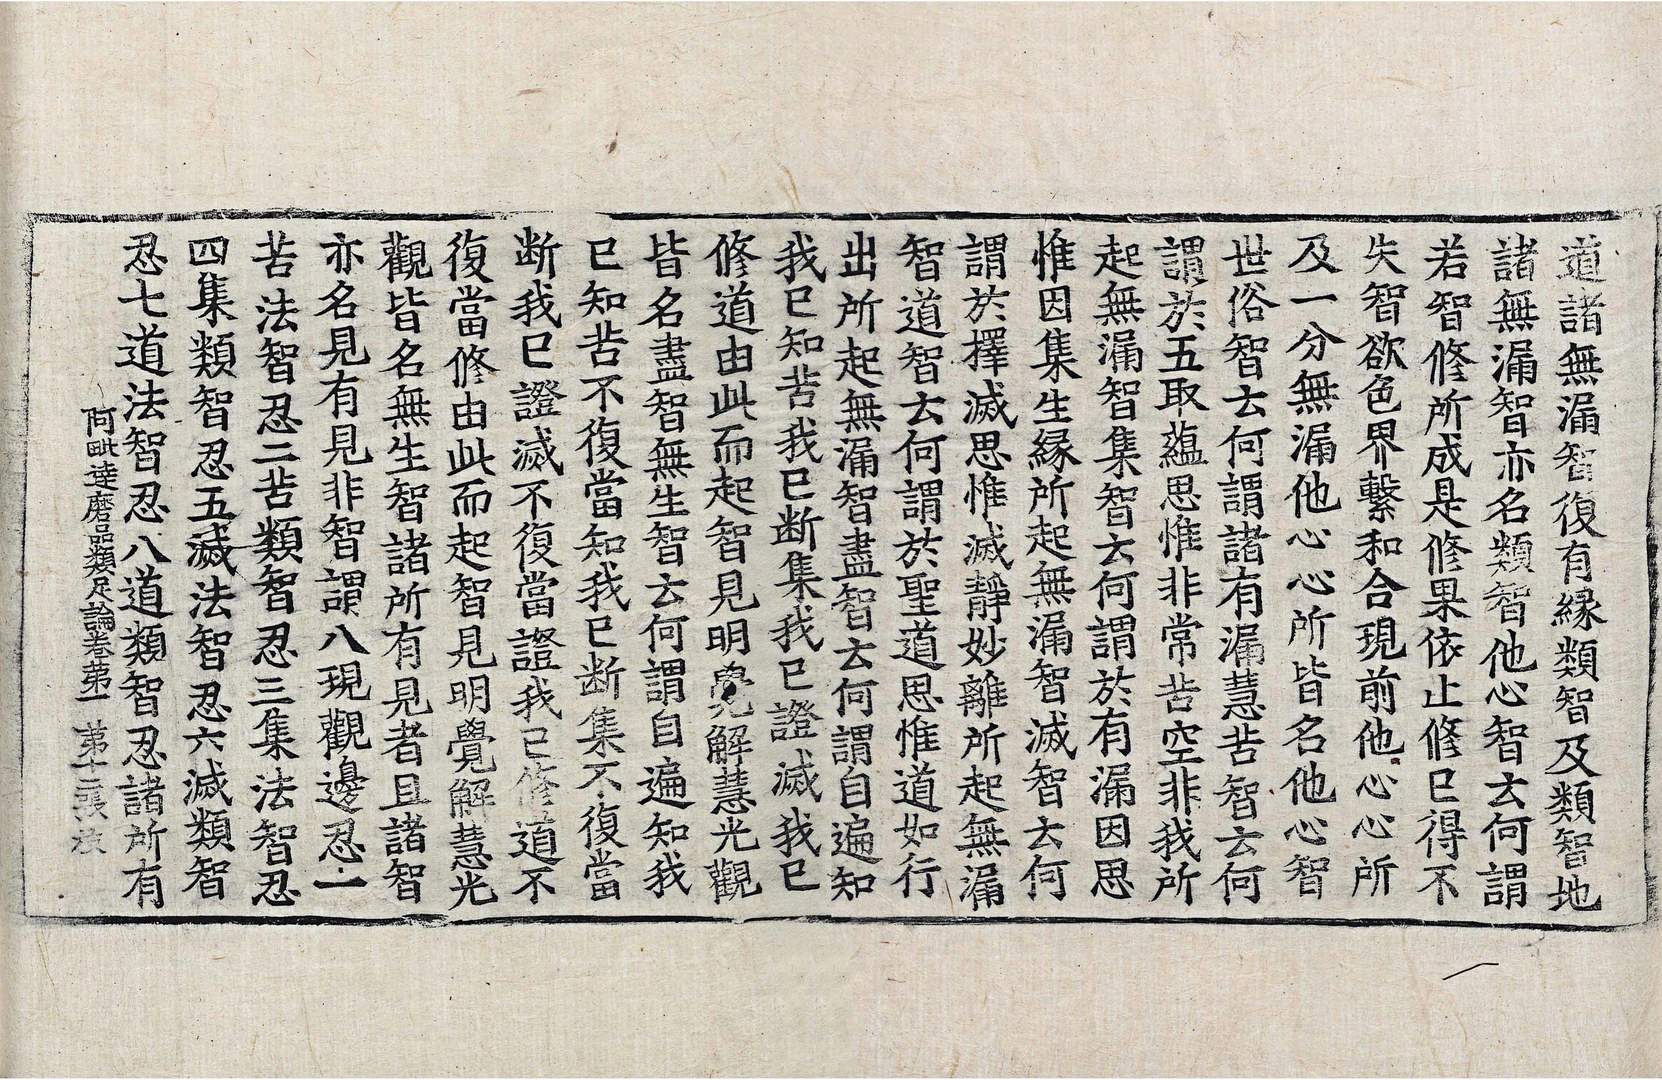 道諸無漏智復有緣類智及類智地
諸無漏智亦名類智他心智云何謂
若智修所成是修果依止修已得不
失智欲色界繫和合現前他心心所
及一分無漏他心心所皆名他心智
世俗智云何謂諸有漏慧苦智云何
謂於五取蘊思惟非常苦空非我所
起無漏智集智云何謂於有漏因思
惟因集生緣所起無漏智滅智云何
謂於擇滅思惟滅靜妙離所起無漏
智道智云何謂於聖道思惟道如行
出所起無漏智盡智云何謂自遍知
我已知苦我已断集我已證滅我已
修道由此而起智見明覺解慧光觀
皆名盡智無生智云何謂自遍知我
已知苦不復當知我已断集不復當
断我已證滅不復當證我已修道不
復當修由此而起智見明覺解慧光
觀皆名無生智諸所有見者且諸智
亦名見有見非智謂八現觀邊忍一
苦法智忍二苦類智忍三集法智忍
四集類智忍五滅法智忍六滅類智
忍七道法智忍八道類智忍諸所有
阿毗達磨品類足論卷苐一 苐十二張